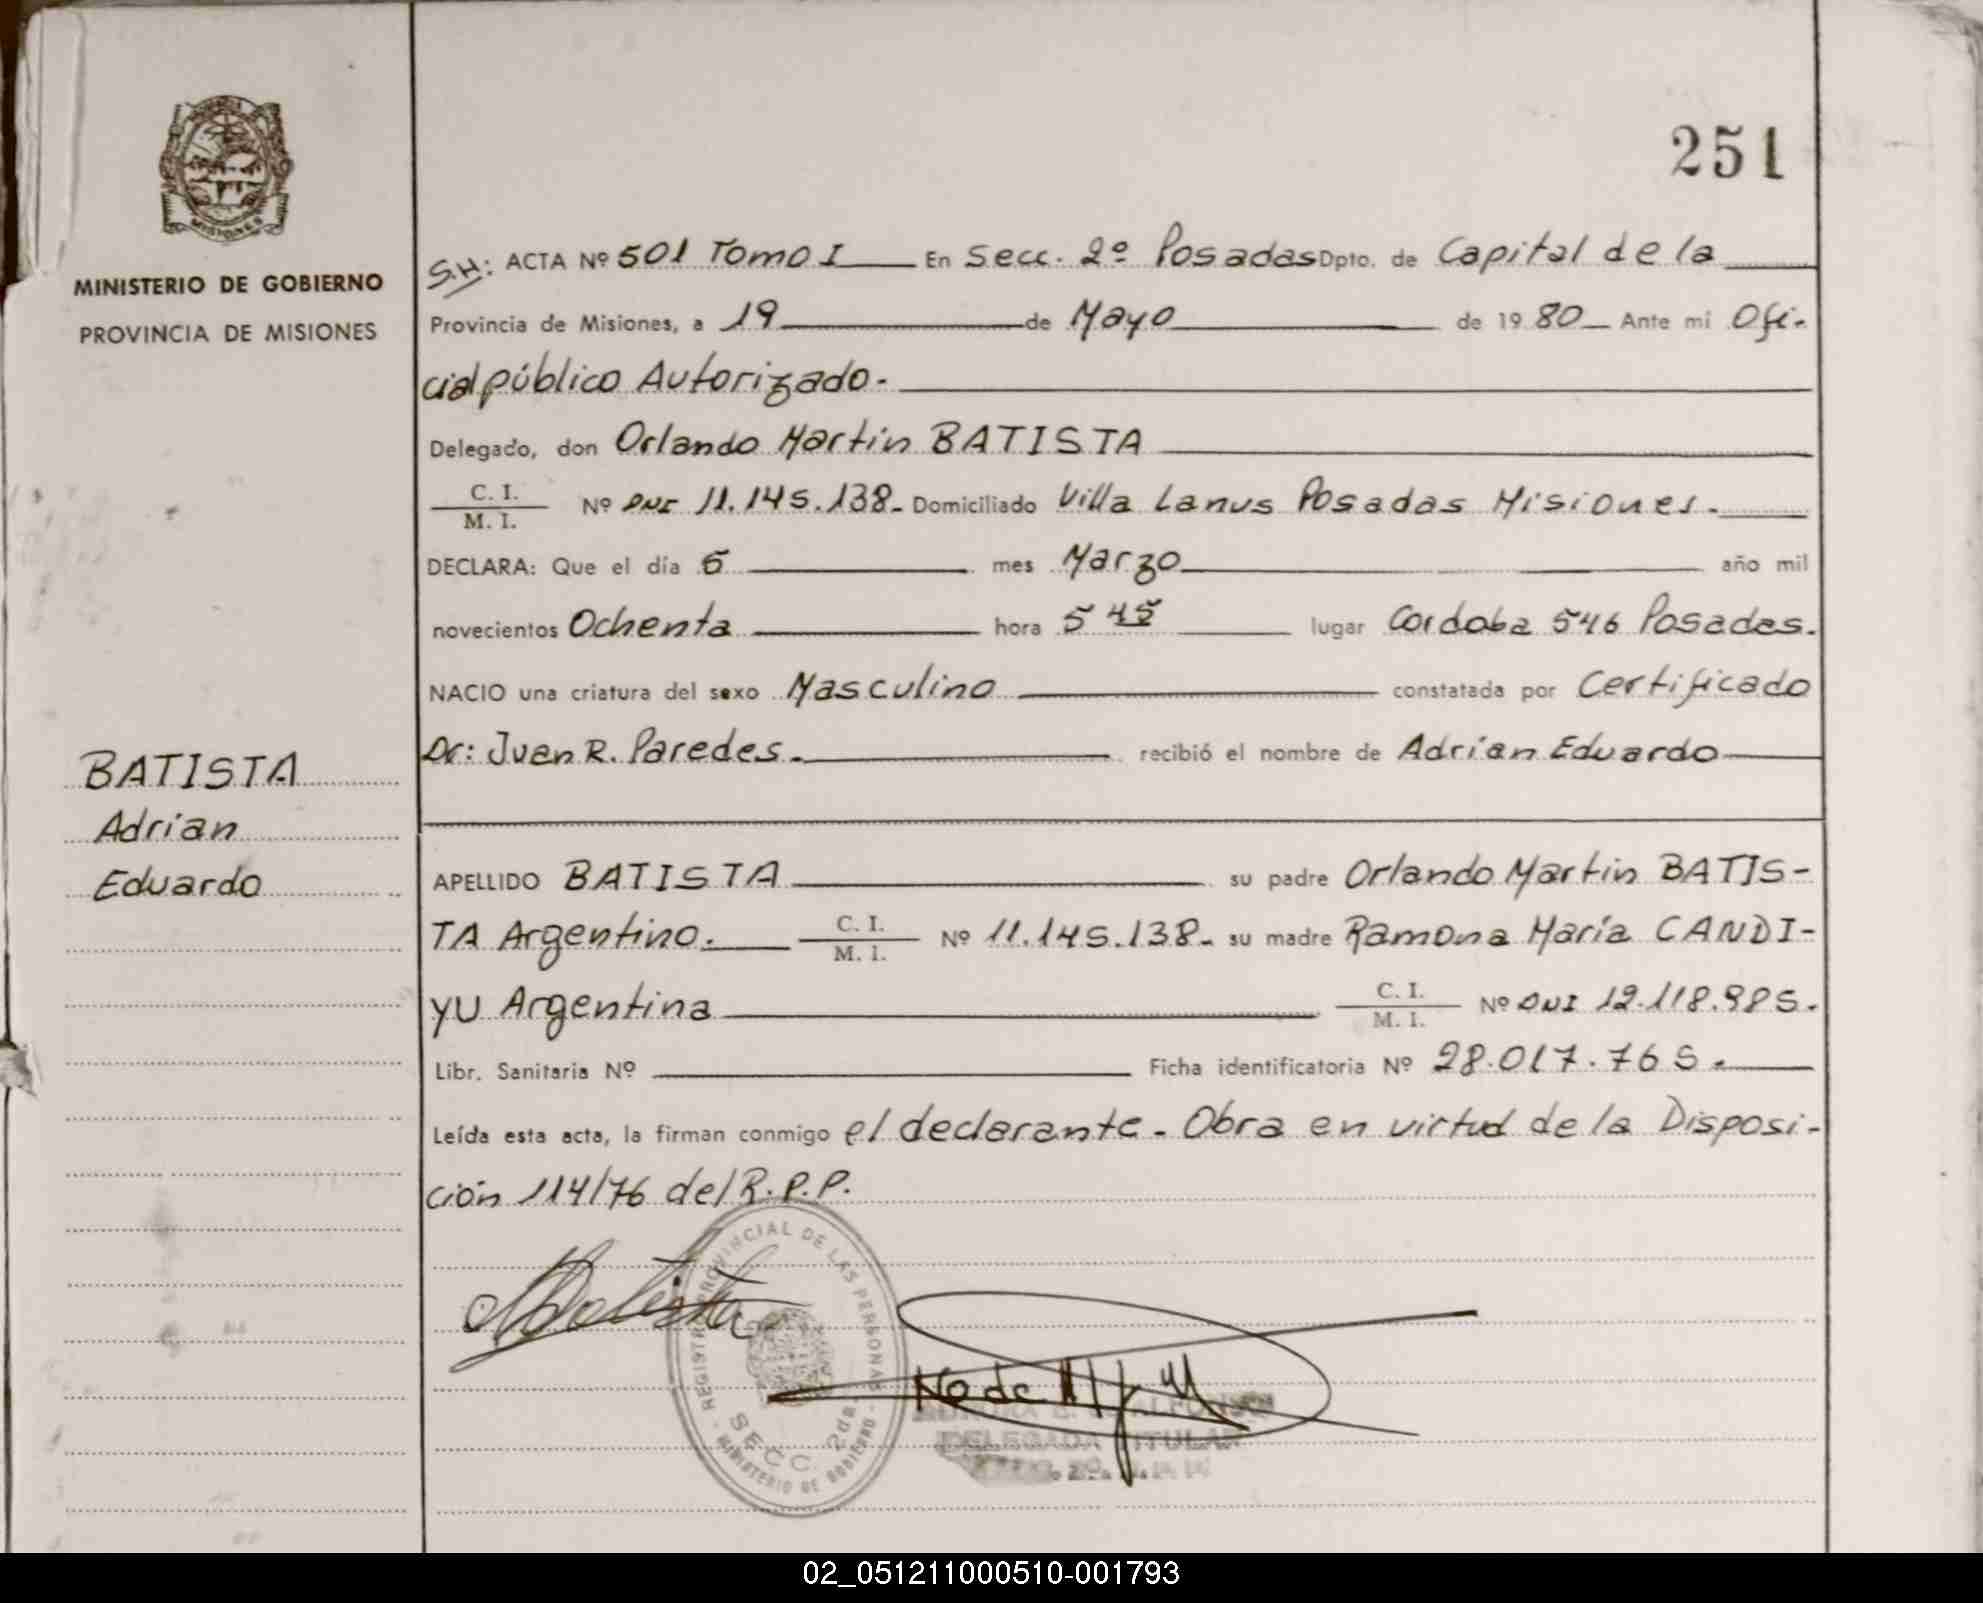 251
MINISTERIO DE GOBIERNO
PROVINCIA DE MISIONES
S.H: ACTA Nº 501 Tomo I En Secc. 2º Posadas Dpto. de Capital de la
Provincia de Misiones, a 19 de Mayo de 1980 Ante mi Ofi-
cial público Autorizado.
Delegado, don Orlando Martin BATISTA
C. I.
M. I. Nº DNI 11.145.138. Domiciliado Villa Lanus Posadas Misiones.
DECLARA: Que el día 5 mes Marzo año mil
novecientos Ochenta hora 5 45 lugar Cordoba 546 Posadas.
NACIO una criatura del sexo Masculino constatada por Certificado
Dr: Juan R. Paredes. recibió el nombre de Adrian Eduardo
BATISTA
Adrian
Eduardo
APELLIDO BATISTA su padre Orlando Martin BATIS-
TA Argentino. C. I.
M. I. Nº 11.145.138. su madre Ramona María CANDI-
YU Argentina C. I.
M. I. Nº DNI 12.118.985.
Libr. Sanitaria Nº Ficha identificatoria Nº 28.017.765.
Leída esta acta, la firman conmigo el declarante. Obra en virtud de la Disposi-
ción 114/76 del R.P.P.
REGISTRO PROVINCIAL DE LAS PERSONAS
SECC. 2da.
MINISTERIO DE GOBIERNO
DELEGADA TITULAR
02_051211000510-001793